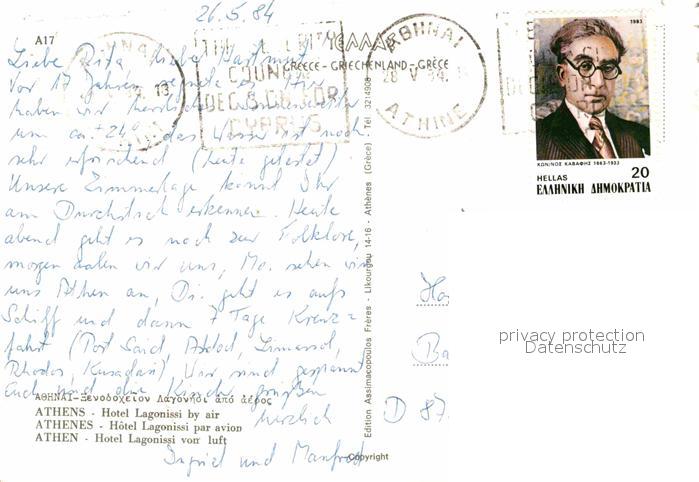 26.5.84
A17
ΕΛΛΑΣ
GREECE - GRIECHENLAND - GRÈCE
ΑΘΗΝΑΙ
28 V 84
ATHINE
COUNCIL
DEC S. G. FOR
CYPRUS
1983
ΚΩΝ/ΝΟΣ ΚΑΒΑΦΗΣ 1863-1933
HELLAS 20
ΕΛΛΗΝΙΚΗ ΔΗΜΟΚΡΑΤΙΑ
Liebe Rita, lieber Hartmut,
Vor 17 Jahren
haben wir
um ca + 24° das Wasser ist noch
sehr erfrischend (heute getestet).
Unsere Zimmerlage könnt Ihr
am Durchstich erkennen. Heute
abend geht es noch zur Folklore,
morgen aalen wir uns, Mo. sehen wir
uns Athen an, Di. geht es aufs
Schiff und dann 7 Tage Kreuz=
fahrt (Port Said, Ashdod, Limassol,
Rhodos, Kusadasi) Wir sind gespannt
Euch und die Kinder grüßen
herzlich
Ingrid und Manfred
ΑΘΗΝΑΙ - Ξενοδοχείον Λαγονήσι από αέρος
ATHENS - Hotel Lagonissi by air
ATHENES - Hôtel Lagonissi par avion
ATHEN - Hotel Lagonissi von luft
Edition Assimacopoulos Frères - Likourgou 14-16 - Athènes (Grèce) - Tél. 3214908
Copyright
D 87
privacy protection
Datenschutz